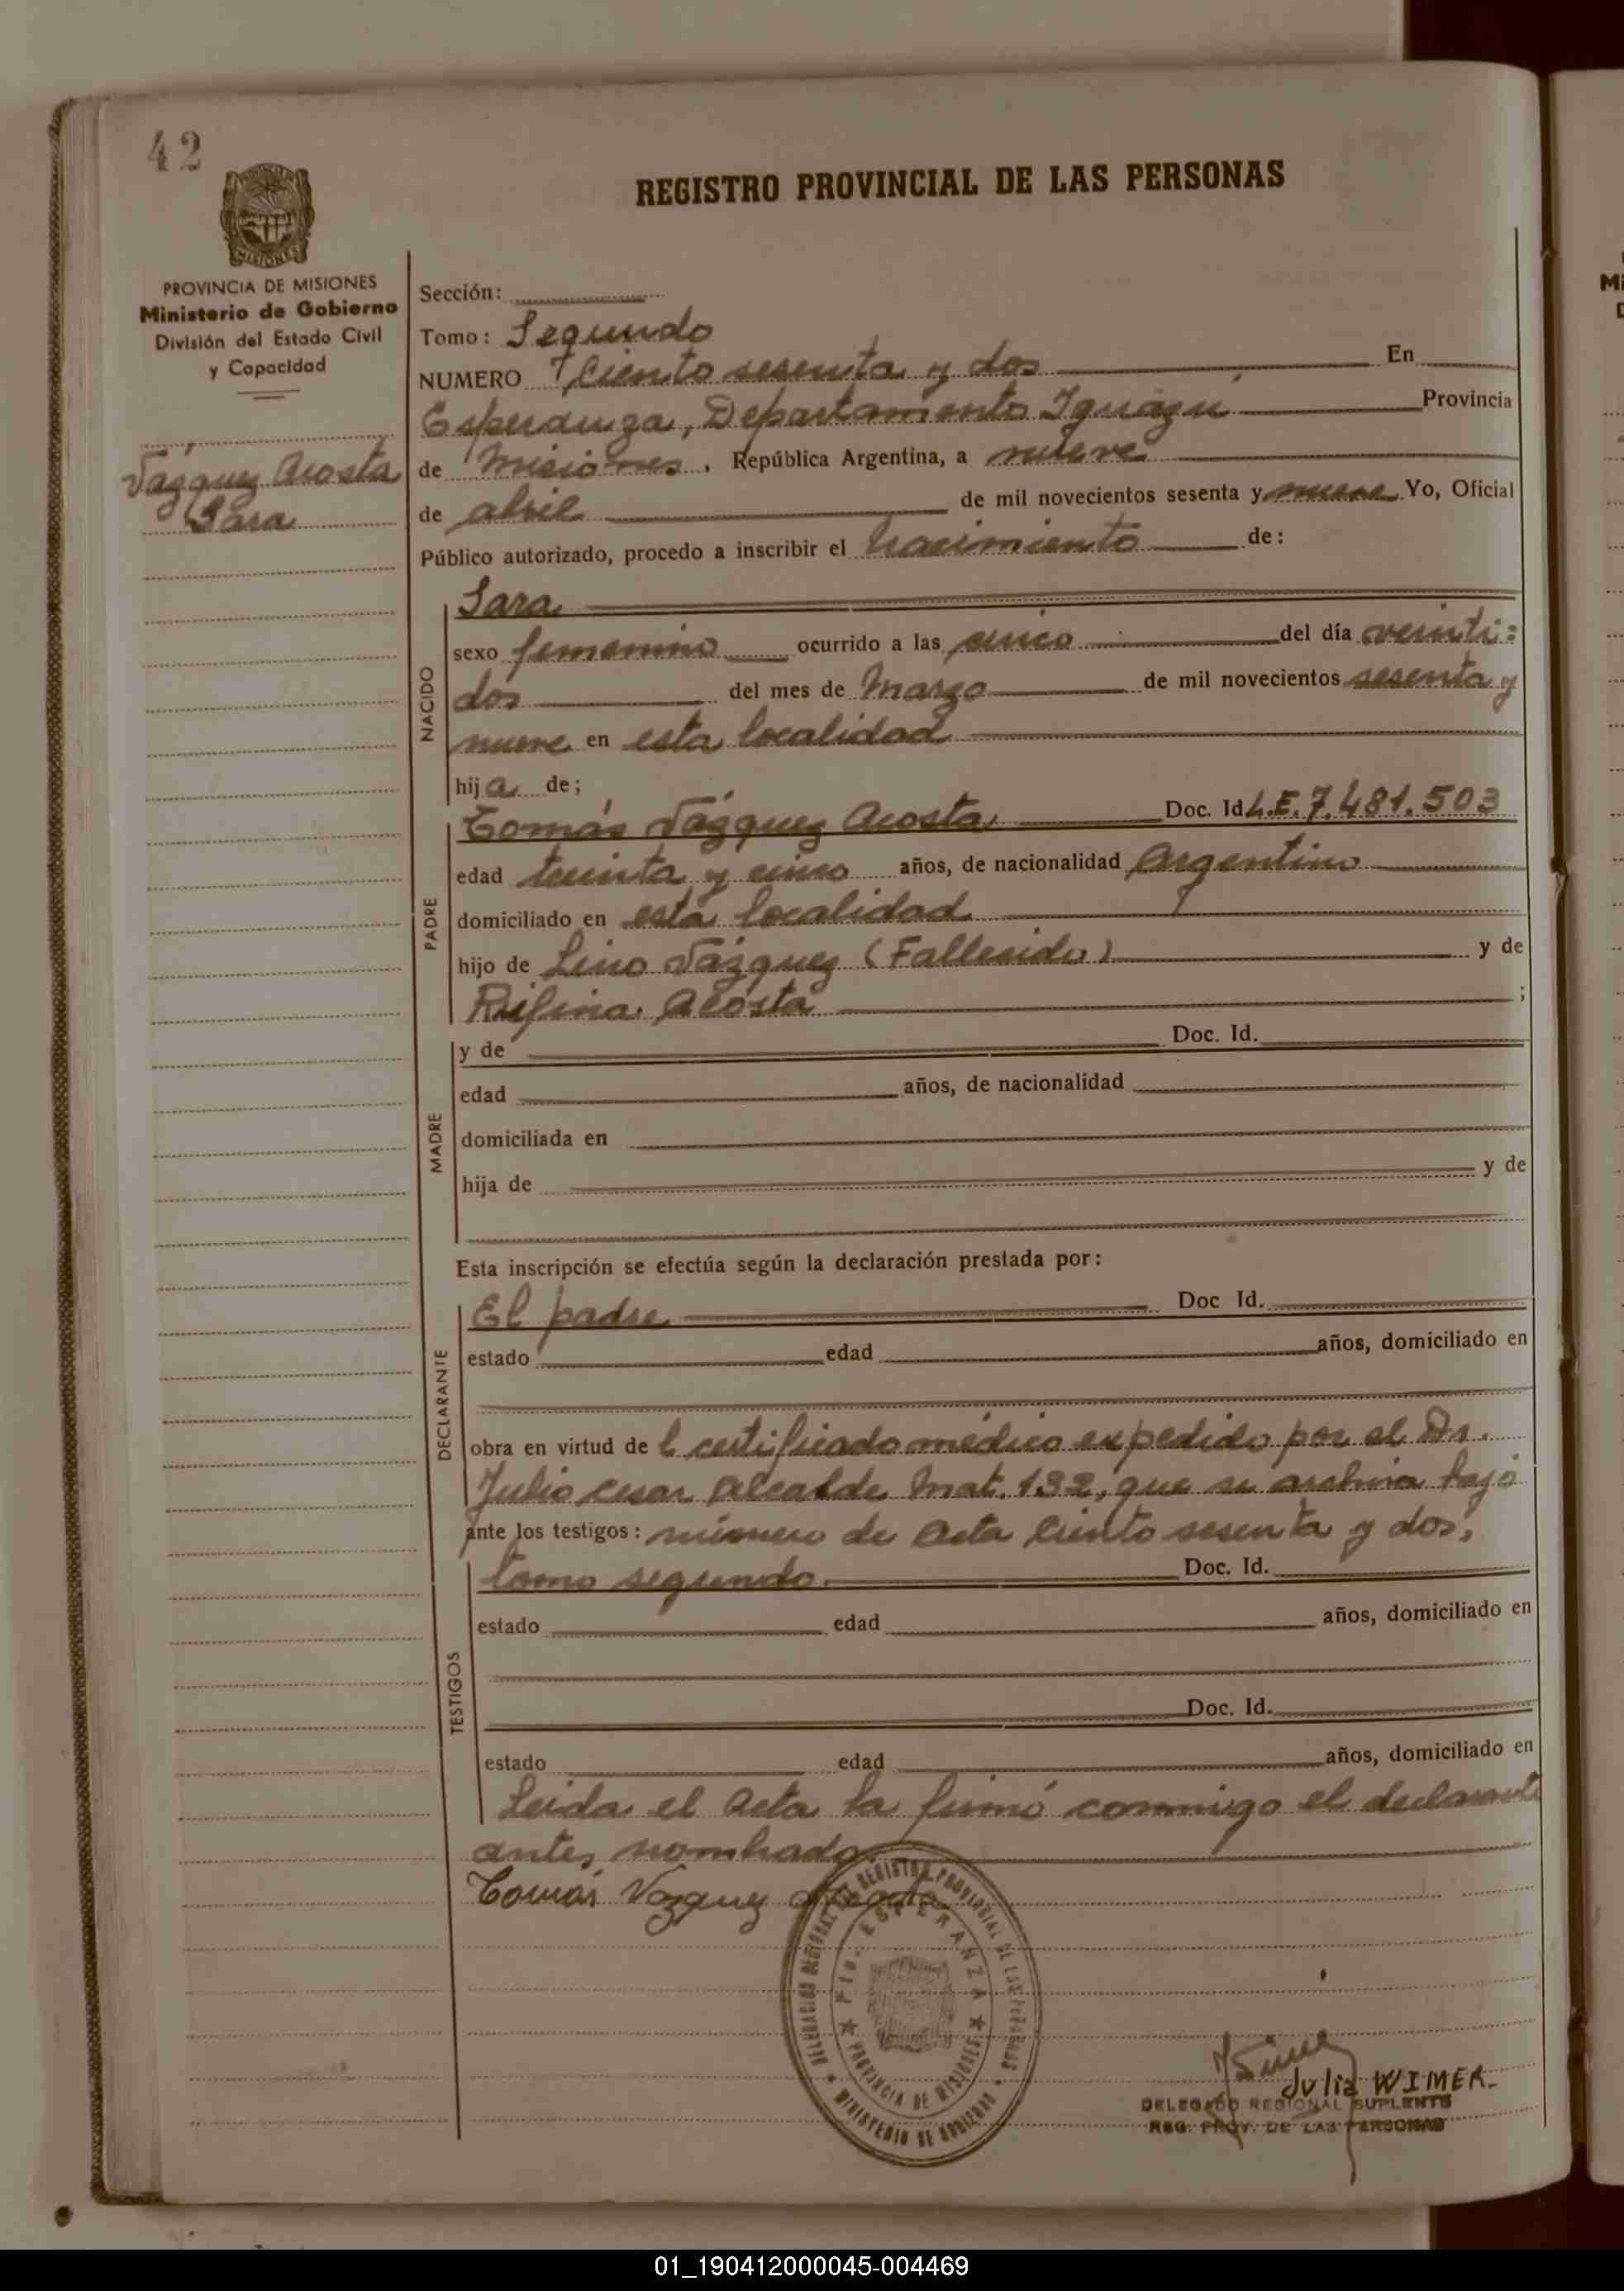 42
REGISTRO PROVINCIAL DE LAS PERSONAS
MISIONES
PROVINCIA DE MISIONES
Ministerio de Gobierno
División del Estado Civil
y Capacidad
Vázquez Acosta
Sara
Sección:
Tomo: Segundo
NUMERO Ciento sesenta y dos En
Esperanza, Departamento Iguazú Provincia
de Misiones, República Argentina, a nueve
de abril de mil novecientos sesenta y nueve Yo, Oficial
Público autorizado, procedo a inscribir el nacimiento de:
NACIDO
Sara
sexo femenino ocurrido a las cinco del día veinti=
dos del mes de Marzo de mil novecientos sesenta y
nueve en esta localidad
hija de;
PADRE
Tomás Vázquez Acosta Doc. Id L.E. 7.481.503
edad treinta y cinco años, de nacionalidad Argentino
domiciliado en esta localidad
hijo de Lino Vázquez (Fallesido) y de
Rufina Acosta ;
MADRE
y de Doc. Id.
edad años, de nacionalidad
domiciliada en
hija de y de
Esta inscripción se efectúa según la declaración prestada por:
DECLARANTE
El padre Doc Id.
estado edad años, domiciliado en
obra en virtud de l certificado médico expedido por el Dr.
Julio Cesar Alcalde Mat. 132, que se archiva bajo
ante los testigos: número de acta ciento sesenta y dos,
TESTIGOS
tomo segundo. Doc. Id.
estado edad años, domiciliado en
Doc. Id.
estado edad años, domiciliado en
Leida el acta la firmó conmigo el declarante
antes nombrado.
Tomás Vazquez Acosta
DELEGACION REGIONAL DEL REGISTRO PROVINCIAL DE LAS PERSONAS
Pto. ESPERANZA
PROVINCIA DE MISIONES
MINISTERIO DE GOBIERNO
Julia WIMER
DELEGADO REGIONAL SUPLENTE
REG. PROV. DE LAS PERSONAS
01_190412000045-004469